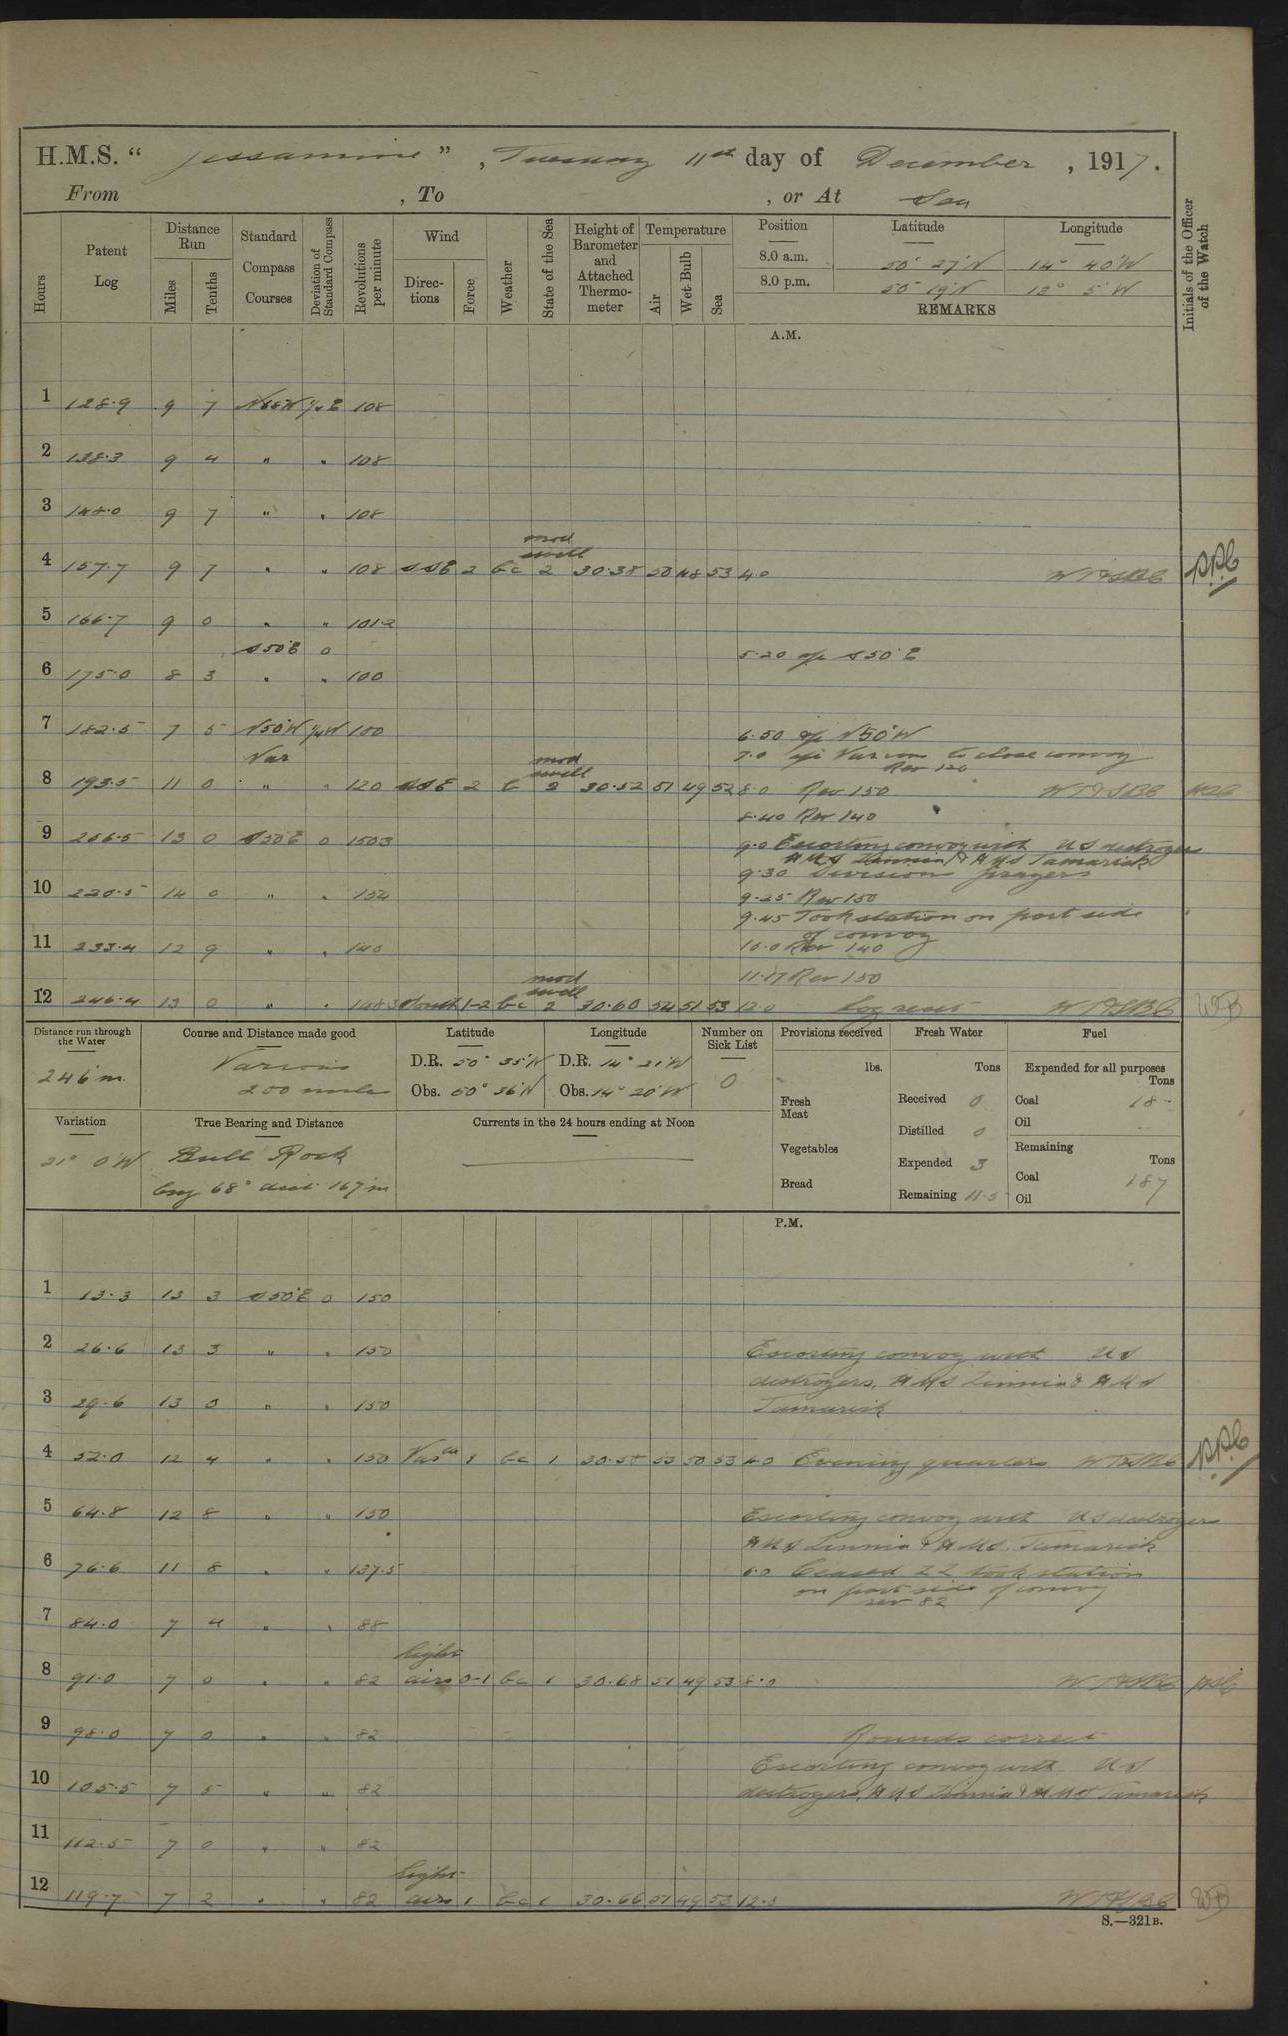 H.M.S. “ Jessamine ” , Tuesday 11th day of December , 1917.
From , To , or At Sea
Hours
Patent Log
Distance Run
Miles
Tenths
Standard Compass Courses
Deviation of Standard Compass
Revolutions per minute
Wind
Directions
Force
Weather
State of the Sea
Height of Barometer and Attached Thermometer
Temperature
Air
Wet Bulb
Sea
Position
Latitude
Longitude
8.0 a.m. 50° 27' N 14° 40' W
8.0 p.m. 50° 19' N 12° 5' W
REMARKS
Initials of the Officer of the Watch
A.M.
1 128.9 9 7 N88W 108
2 138.3 9 4 " " 108
3 148.0 9 7 " " 108
mod
swell
4 157.7 9 7 " " 108 SSE 2 bc 2 30.38 50 48 53 4.0
5 166.7 9 0 " " 101.2
S50°E 0 5.20 a/c S50°E
6 175.0 8 3 " " 100
7 182.5 7 5 N50°W 100 6.50 a/c N50°W
Var 7.0 Various to close convoy
Rev 120
mod
swell
8 193.5 11 0 " " 120 SSE 2 b 2 30.52 51 49 52 8.0 Rev 150
8.40 Rev 140
9 206.5 13 0 S50°E 0 150.3 9.0 Escorting convoy with US destroyers
HMS Zinnia & HMS Tamarisk
9.30 Division prayers
10 220.5 14 0 " " 154 9.25 Rev 150
9.45 Took station on port side
of convoy
11 233.4 12 9 " " 140 10.0 Rev 140
11.17 Rev 150
mod
swell
12 246.4 13 0 " " 148.3 South 1-2 bc 2 30.60 54 51 53 12.0 Log reset
Distance run through the Water
246 m
Course and Distance made good
Various
200 miles
Latitude
D.R. 50° 35' N
Obs. 50° 36' N
Longitude
D.R. 14° 21' W
Obs. 14° 20' W
Number on Sick List
0
Provisions received
lbs.
Fresh Meat
Vegetables
Bread
Fresh Water
Tons
Received 0
Distilled 0
Expended 3
Remaining 11.5
Fuel
Expended for all purposes
Tons
Coal 18
Oil
Remaining
Tons
Coal 187
Oil
Variation
21° 0' W
True Bearing and Distance
Bull Rock
brg 68° dist 167 m
Currents in the 24 hours ending at Noon
P.M.
1 13.3 13 3 S50°E 0 150
2 26.6 13 3 " " 150 Escorting convoy with US
destroyers, HMS Zinnia & HMS
3 29.6 13 0 " " 150 Tamarisk
4 52.0 12 4 " " 150 1 bc 1 30.58 53 50 53 4.0 Evening quarters
5 64.8 12 8 " " 150 Escorting convoy with US destroyers
HMS Zinnia & HMS Tamarisk
6 76.6 11 8 " " 137.5 6.0 Ceased ZZ took station
on port side of convoy
rev 82
7 84.0 7 4 " " 88
light
8 91.0 7 0 " " 82 airs 0-1 bc 1 30.68 51 49 53 8.0
9 98.0 7 0 " " 82 Rounds correct
Escorting convoy with US
10 105.5 7 5 " " 82 destroyers, HMS Zinnia & HMS Tamarisk
11 112.5 7 0 " " 82
light
12 119.7 7 2 " " 82 airs 1 bc 1 30.66 51 49 53 12.0
S.—321B.